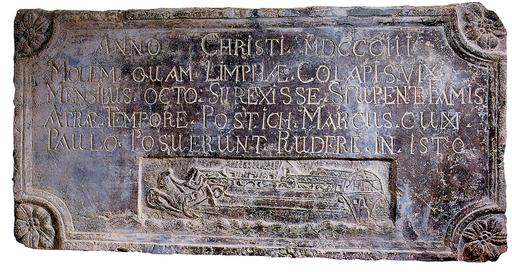 ANNO CHRISTI MDCCCIII
MOLEM QUAM LIMPHÆ COLAPIS VIX
MENSIBUS OCTO SUREXISSE STUPENT FAMIS
TEMPORE POSTICH MARCUS CUM
PAULO POSUERUNT RUDERE IN ISTO